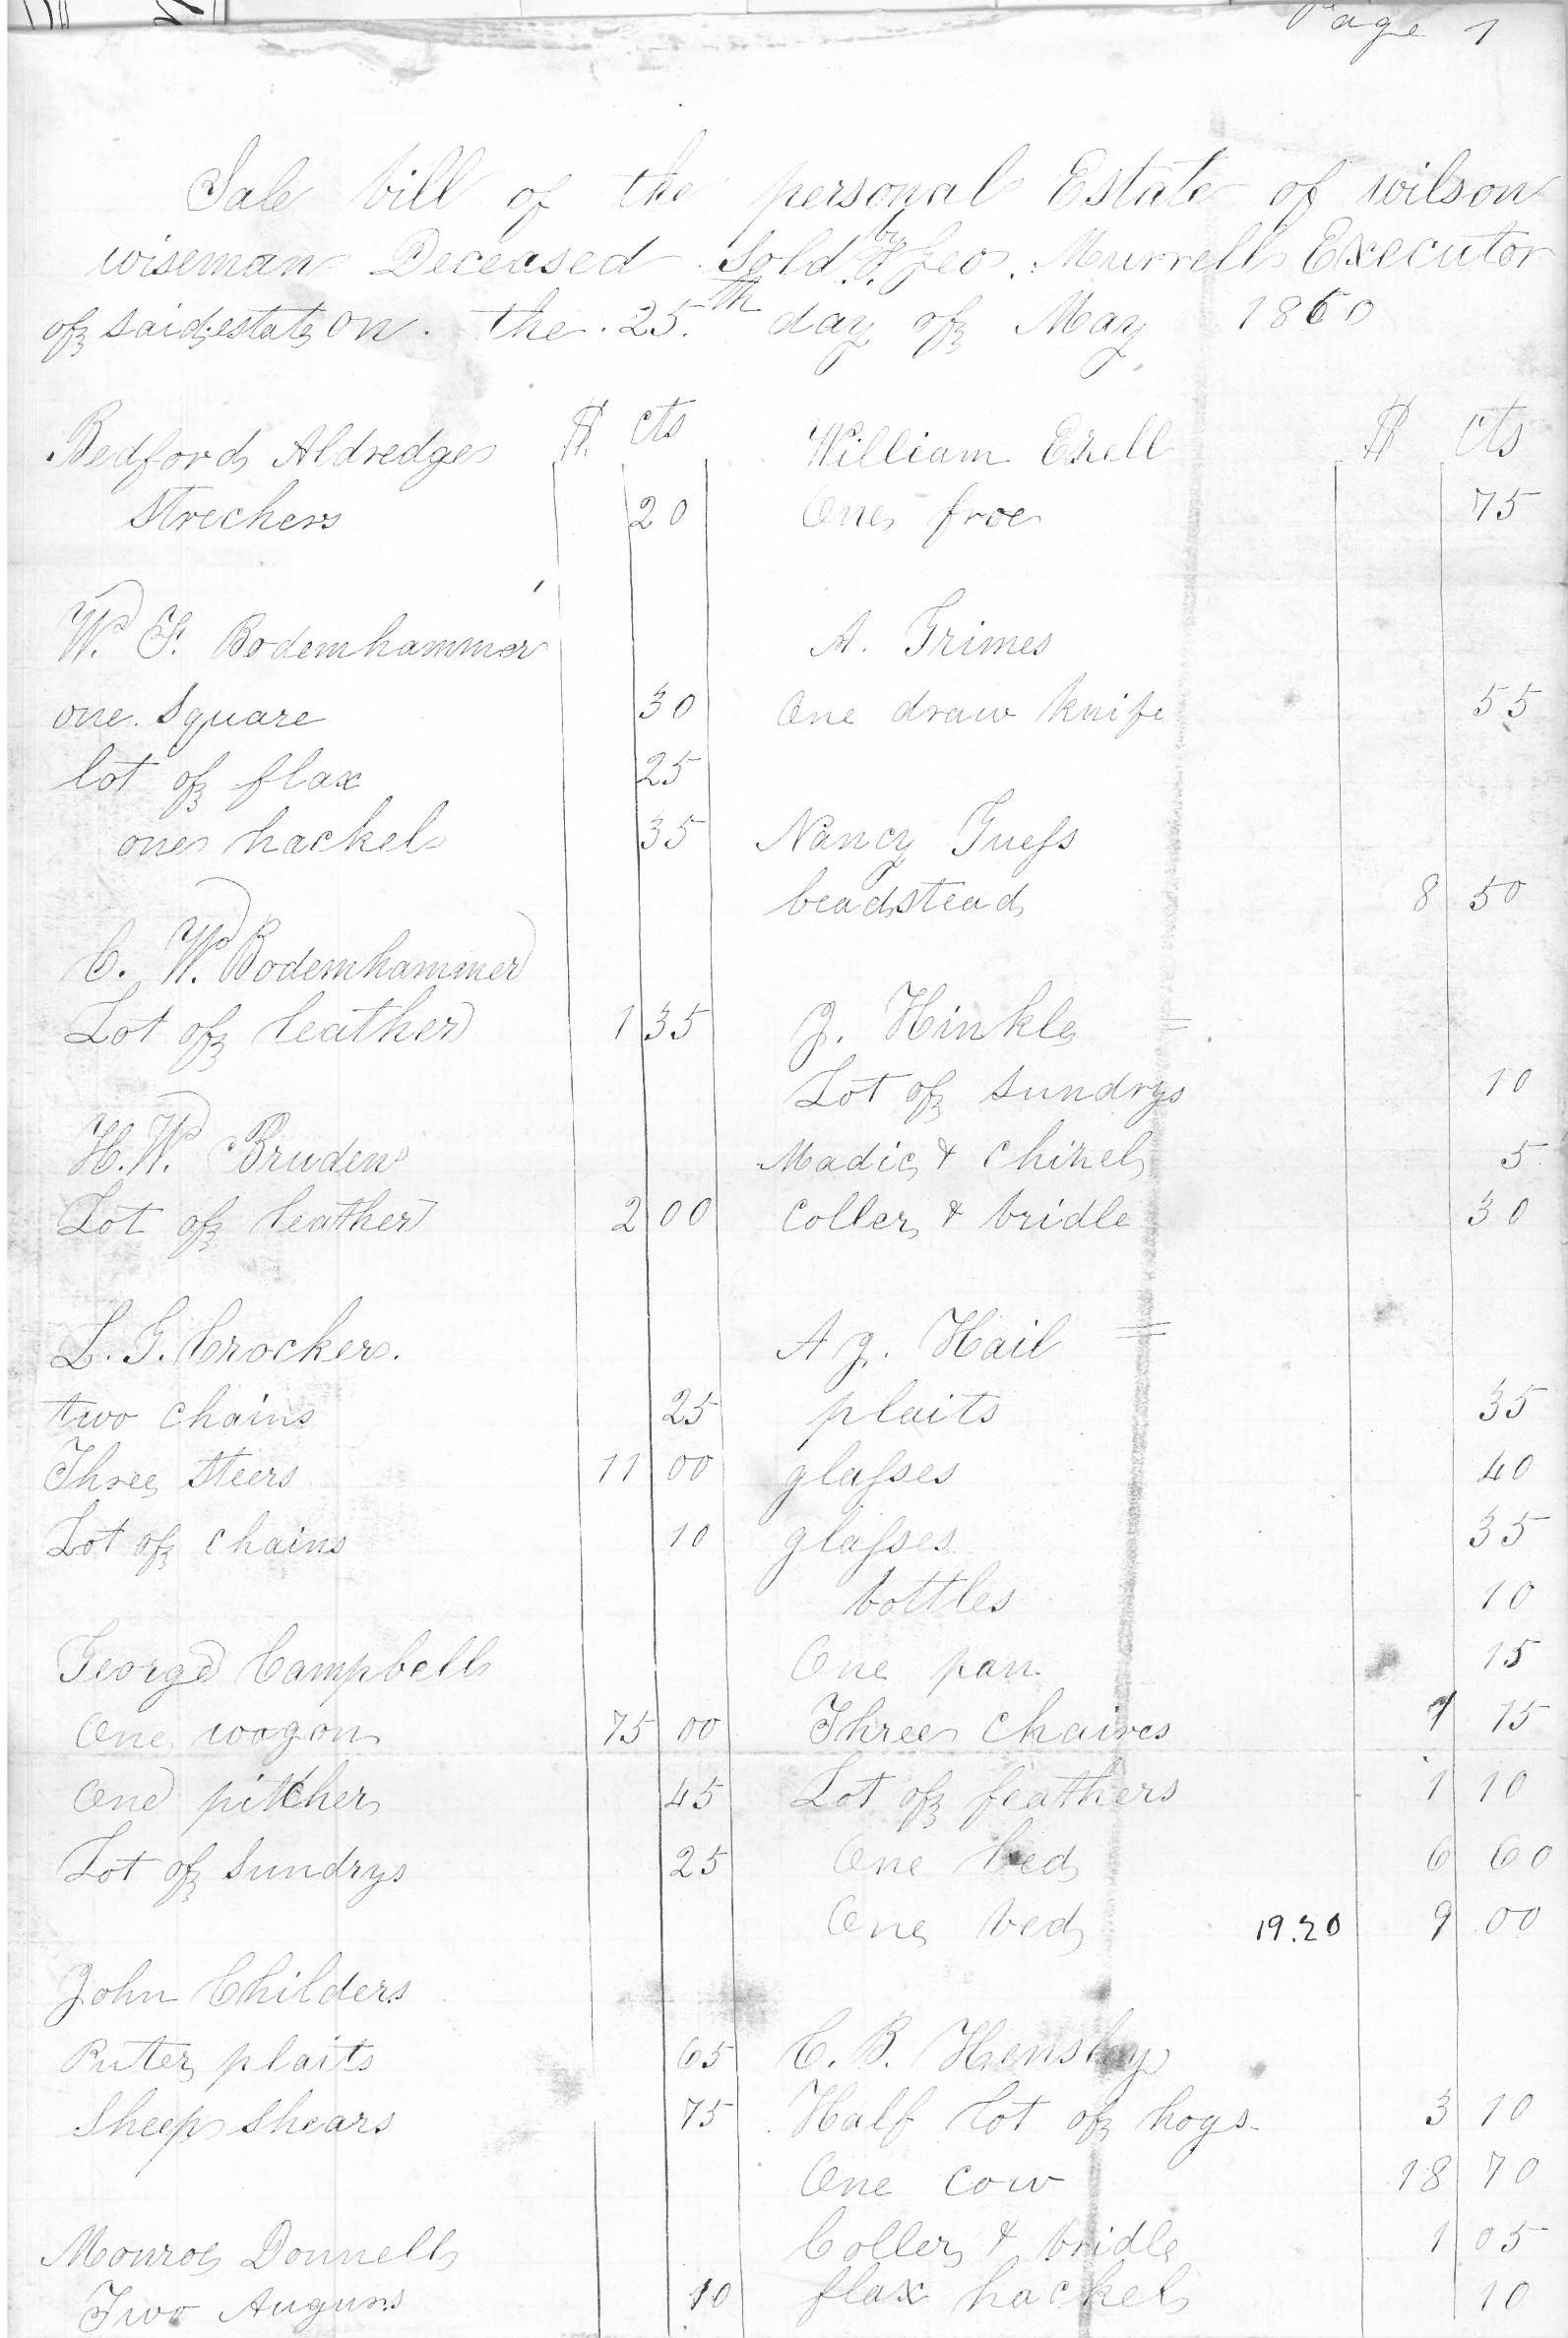 Page 1
Sale bill of the personal Estate of wilson
wiseman Deceased Sold by Geo. Murrell Executor
of said estate on the 25th day of May 1860
$ cts
Bedford Aldredge
Strechers 20
W. F. Bodemhammer
one Square 30
lot of flax 25
one hackel 35
C. W. Bodemhammer
Lot of leather 1 35
H. W. Bruden
Lot of leather 2 00
L. G. Crocker.
two chains 25
Three Steers 11 00
Lot of chains 10
George Campbell
One wagon 75 00
One pitcher 45
Lot of Sundrys 25
John Childers
Puter plaits 65
Sheep Shears 75
Monroe Donnell
Two Augurs 10
$ cts
William Ezell
One froe 75
A. Grimes
One draw knife 55
Nancy Guess
beadstead 8 50
J. Hinkle =
Lot of sundrys 10
Madic & Chizel 5
Coller & bridle 30
A J. Hail =
plaits 35
glasses 40
glasses 35
bottles 10
One pan 15
Three Chaires 1 15
Lot of feathers 1 10
One bed 6 60
One bed 19.20 9 00
C. B. Hensley
Half Lot of hogs 3 10
One cow 18 70
Coller & bridle 1 05
flax hackel 10